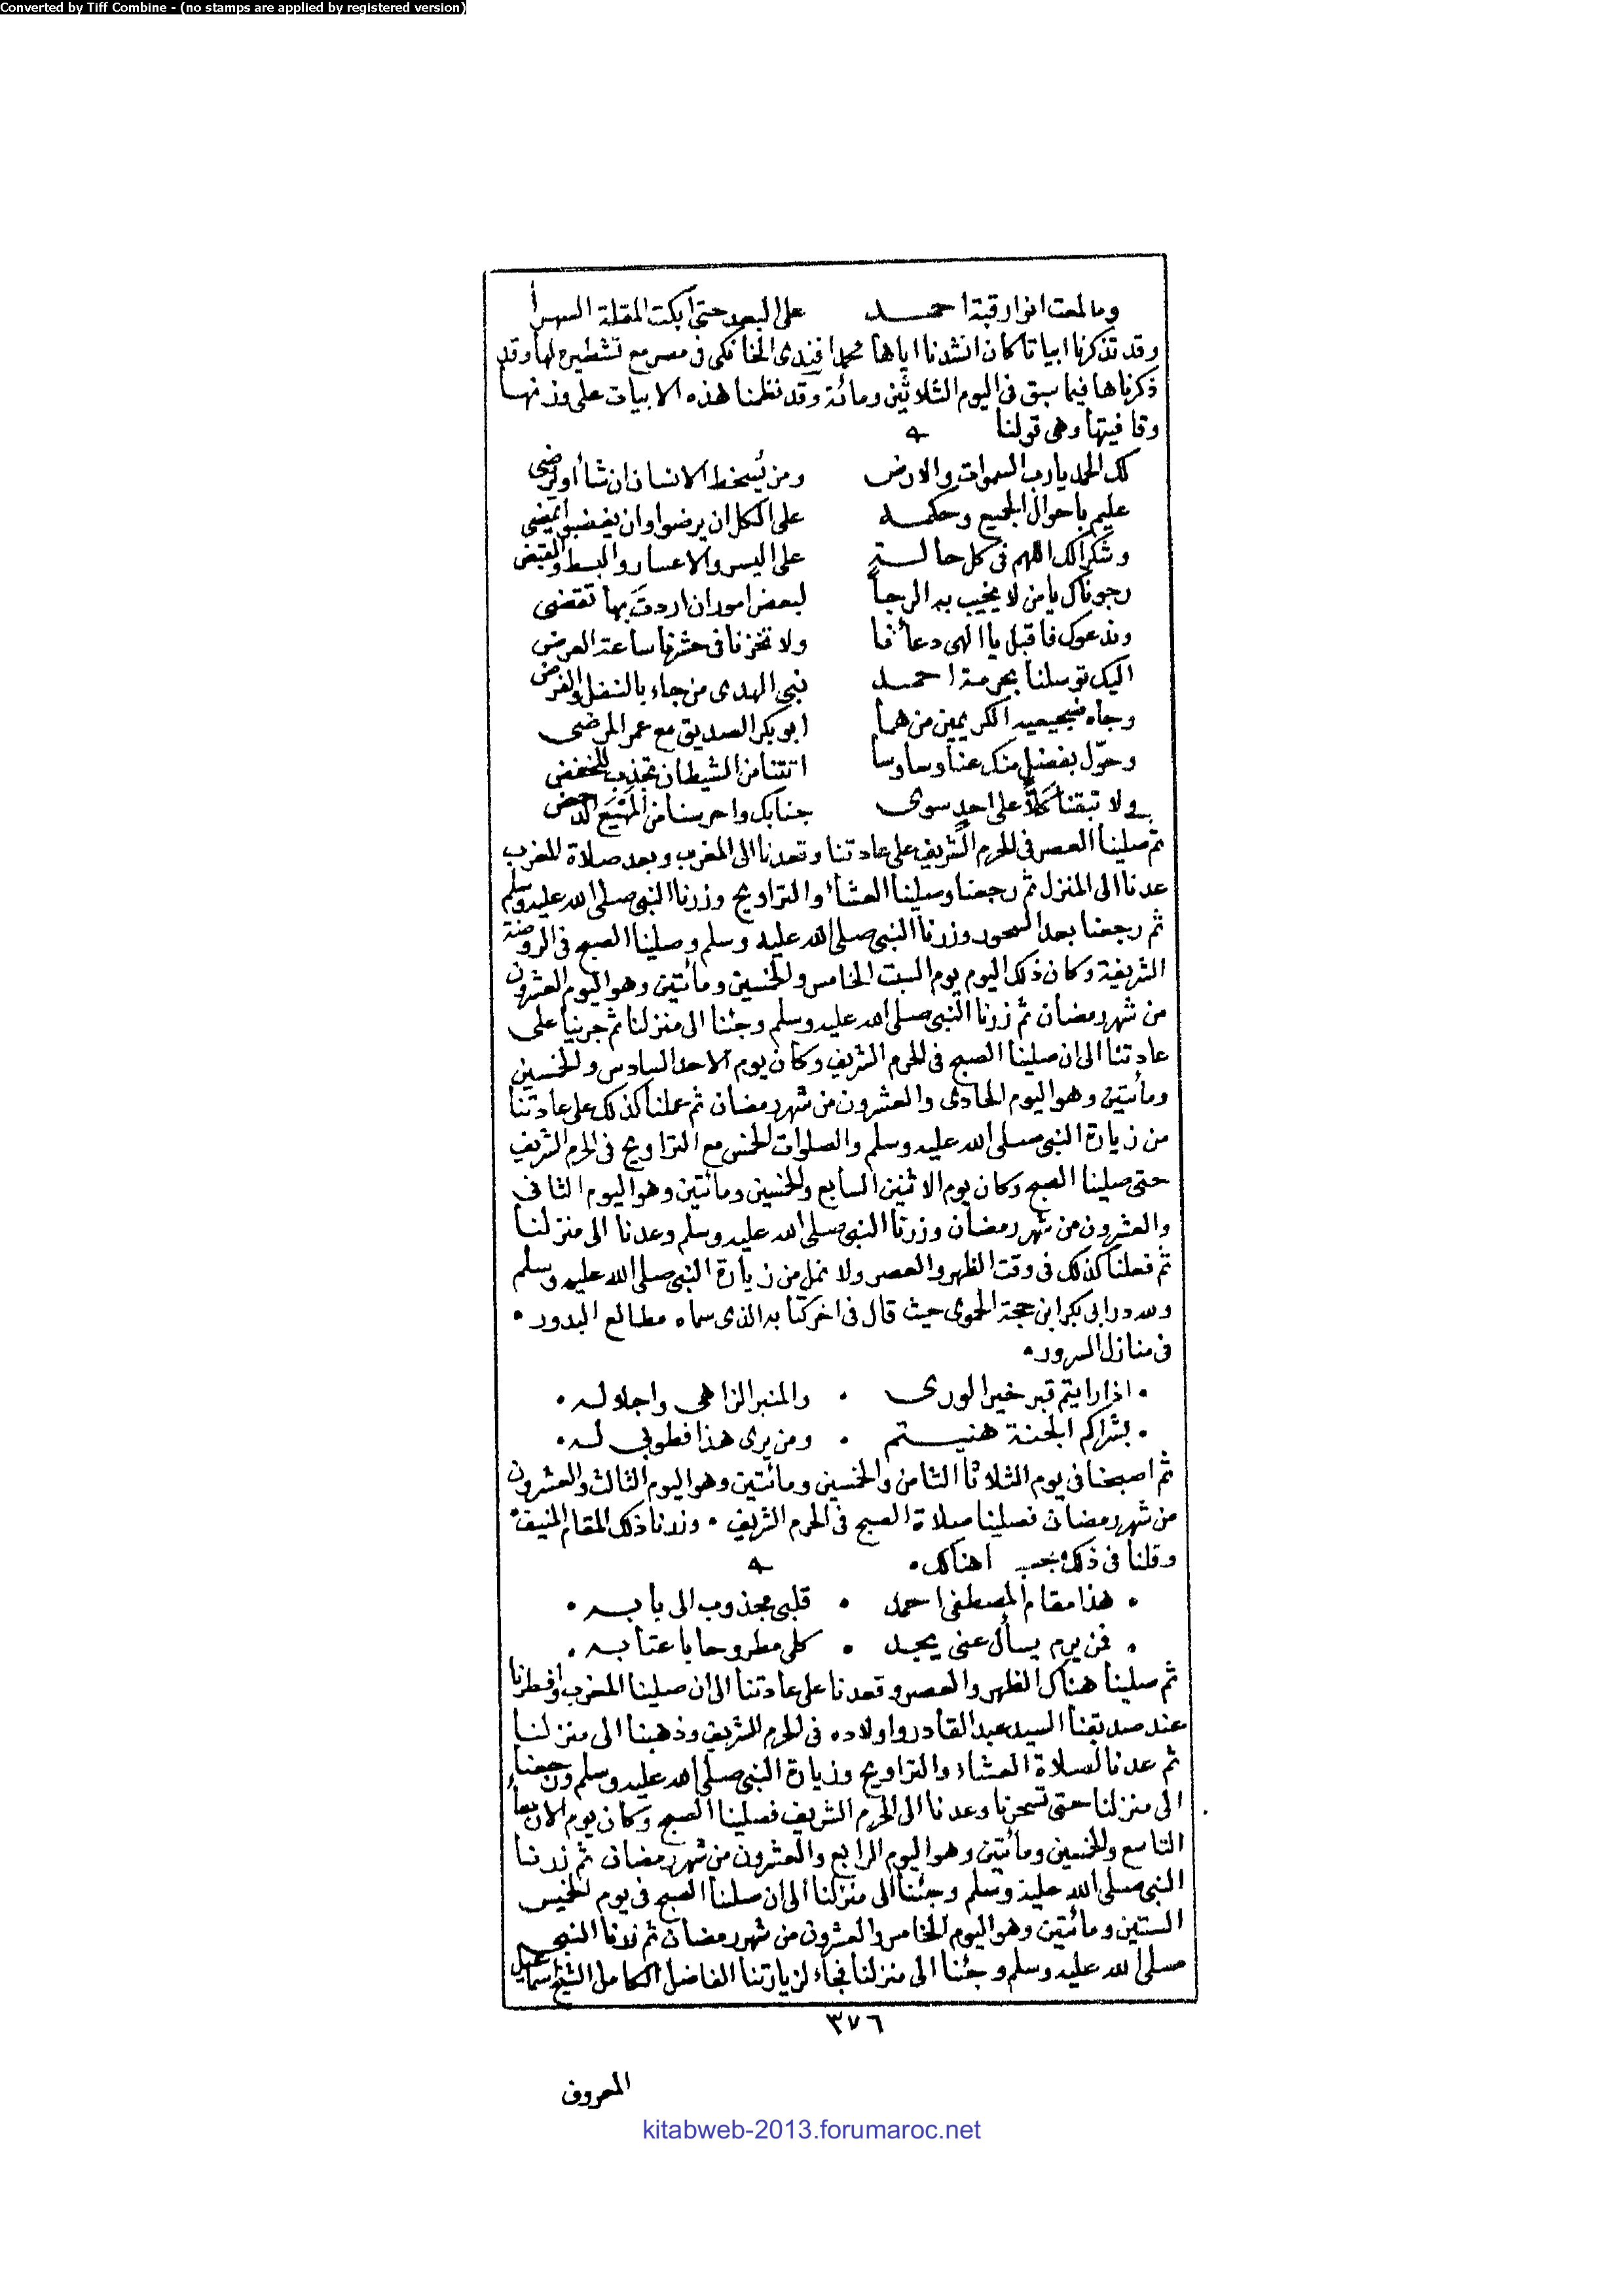 Converted by Tiff Combine - (no stamps are applied by registered version)
وما لمعت انوار قبة احمد على البعد حتى ابكت المقلة السهرا
وقد تذكرنا ابياتا كان انشدنا اياها محمد افندى الخانكى فى مصر مع تشطيره لها وقد
ذكرناها فيما سبق فى اليوم الثلاثين ومائة وقد نظمنا هذه الابيات على وزنها
وقافيتها وهى قولنا
لك الحمد يا رب السموات والارض ومن يُسخط الانسان ان شأ او يرضى
عليم باحوال الجميع وحكمه على الكل ان يرضوا وان يغضبوا يمضى
وشكرا لك اللهم فى كل حالة على اليسر والاعسار والبسط والقبض
رجوناك يا من لا يخيب به الرجا لبعض امور ان اردت بها تقضى
وندعوك فاقبل يا الهى دعأنا ولا تخزنا فى حشرنا ساعة العرض
اليك توسلنا بحرمة احمد نبى الهدى من جاء بالنفل والفرض
وجاه ضجيعيه الكريمين من هما ابو بكر الصديق مع عمر المرضى
وحوّل بفضل منك عنا وساوسا اتتنا من الشيطان تجذب للخفض
ولا تبقنا كلاًّ على احدٍ سوى جنابك واحرسنا من المهيع الدحض
ثم صلينا العصر فى الحرم الشريف على عادتنا وقعدنا الى المغرب وبعد صلاة المغرب
عدنا الى المنزل ثم رجعنا وصلينا العشأ والتراويح وزرنا النبى صلى الله عليه وسلم
ثم رجعنا بعد السحور وزرنا النبى صلى الله عليه وسلم وصلينا الصبح فى الروضة
الشريفة وكان ذلك اليوم يوم السبت الخامس والخمسين ومائتين وهو اليوم العشرون
من شهر رمضان ثم زرنا النبى صلى الله عليه وسلم وجئنا الى منزلنا ثم جرينا على
عادتنا الى ان صلينا الصبح فى الحرم الشريف وكان يوم الاحد السادس والخمسين
ومأتين وهو اليوم الحادى والعشرون من شهر رمضان ثم عملنا كذلك على عادتنا
من زيارة النبى صلى الله عليه وسلم والصلوات الخمس مع التراويح فى الحرم الشريف
حتى صلينا الصبح وكان يوم الاثنين السابع والخمسين ومائتين وهو اليوم الثانى
والعشرون من شهر رمضان وزرنا النبى صلى الله عليه وسلم وعدنا الى منزلنا
ثم فعلنا كذلك فى وقت الظهر والعصر ولا نمل من زيارة النبى صلى الله عليه وسلم
ولله در ابى بكر ابن حجة الحموى حيث قال فى اخر كتابه الذى سماه مطالع البدور •
فى منازل السرور •
• اذا رايتم قبر خير الورى • والمنبر الزاهى واجلاله •
• بشراكم الجنة هنيتم • ومن يرى هذا فطوبى له •
ثم اصبحنا فى يوم الثلاثا الثامن والخمسين ومائتين وهو اليوم الثالث والعشرون
من شهر رمضان فصلينا صلاة الصبح فى الحرم الشريف • وزرنا ذلك المقام المنيف •
وقلنا فى ذلك هناك •
• هذا مقام المصطفى احمد • قلبى مجذوب الى بابه •
• فمن يرم يسأل عنى يجد • كلى مطروحا باعتابه •
ثم صلينا هناك الظهر والعصر وقعدنا على عادتنا الى ان صلينا المغرب وافطرنا
عند صديقنا السيد عبد القادر واولاده فى الحرم الشريف وذهبنا الى منزلنا
ثم عدنا لصلاة العشاء والتراويح وزيارة النبى صلى الله عليه وسلم ورجعنا
الى منزلنا حتى تسحرنا وعدنا الى الحرم الشريف فصلينا الصبح وكان يوم الاربعأ
التاسع والخمسين ومأتين وهو اليوم الرابع والعشرون من شهر رمضان ثم زرنا
النبى صلى الله عليه وسلم وجئنا الى منزلنا الى ان صلينا الصبح فى يوم الخميس
الستين ومأتين وهو اليوم الخامس والعشرون من شهر رمضان ثم زرنا النبى
صلى الله عليه وسلم وجئنا الى منزلنا فجاء لزيارتنا الفاضل الكامل الشيخ اسماعيل
٣٧٦
المعروف
kitabweb-2013.forumaroc.net